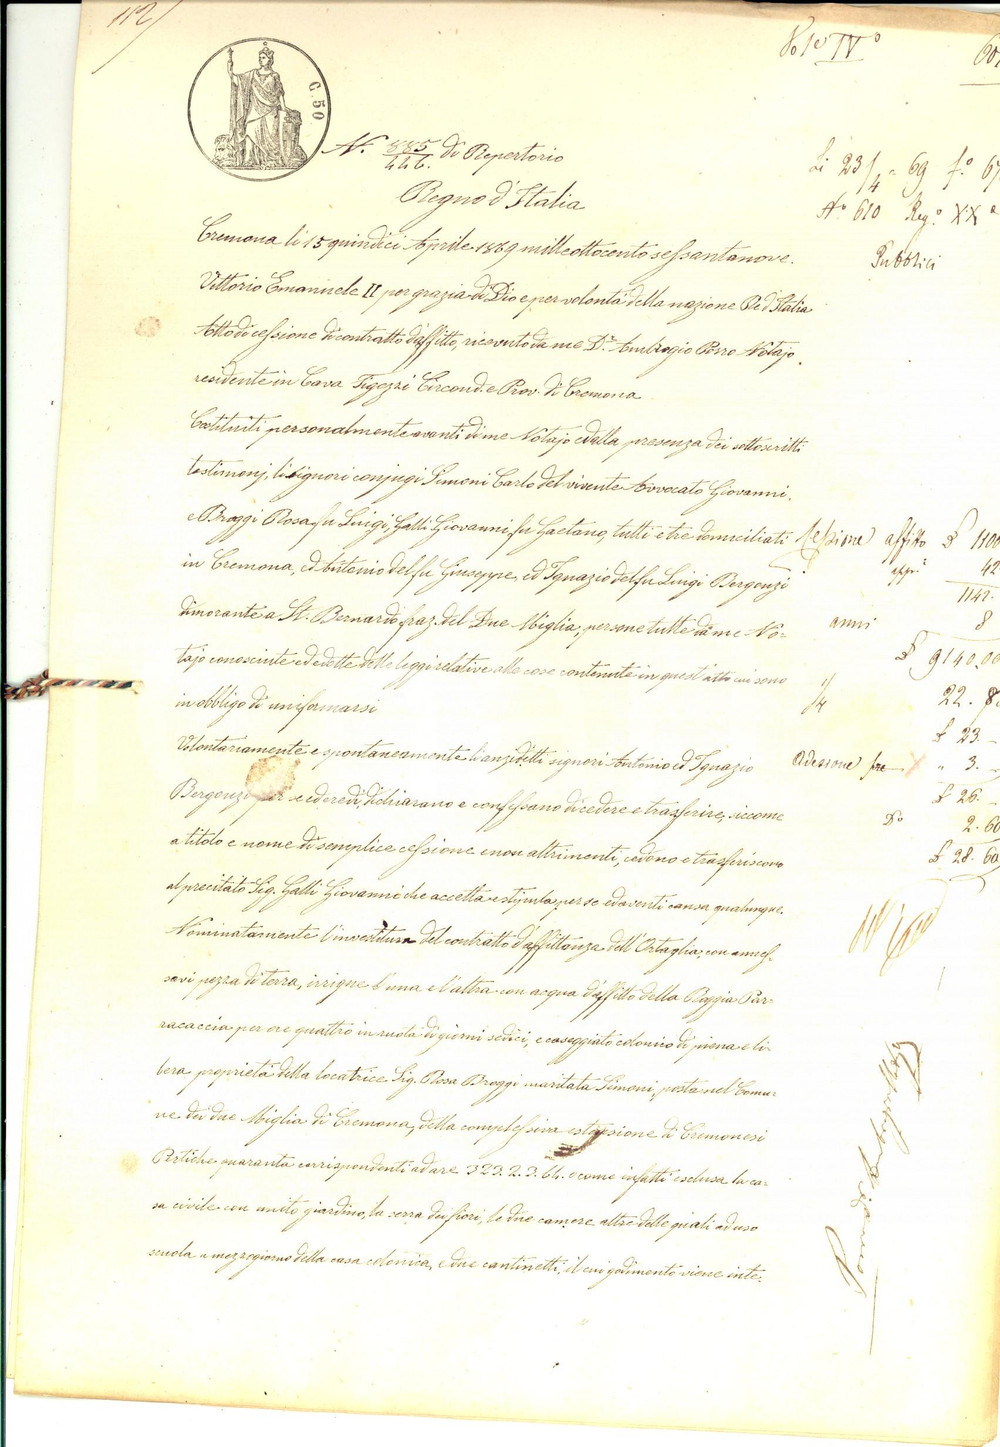 112/
C. 50
N. 885/446. di Repertorio
Regno d'Italia
Cremona li 15 quindici Aprile 1869 milleottocentosessantanove.
Vittorio Emanuele II per grazia di Dio e per volontà della nazione Re d'Italia
Atto di cessione di contratto d'affitto, ricevuto da me Dr. Ambrogio Porro Notajo
residente in Cava Tigozzi Circond. e Prov. di Cremona
Costituiti personalmente avanti di me Notajo ed alla presenza dei sottoscritti
testimonj, li signori conjugi Simoni Carlo del vivente Avvocato Giovanni,
e Broggi Rosa fu Luigi, Galli Giovanni fu Gaetano, tutti e tre domiciliati
in Cremona, ed Antonio del fu Giuseppe, ed Ignazio del fu Luigi Bergonzi
dimorante a St. Bernardo fraz. del Due Miglia, persone tutte da me No-
tajo conosciute ed edotte delle leggi relative alle cose contenute in quest'atto cui sono
in obbligo di uniformarsi
Volontariamente e spontaneamente li anzidetti signori Antonio ed Ignazio
Bergonzi per se ed eredi, dichiarano e confessano di cedere e trasferire, siccome
a titolo e nome di semplice cessione e non altrimenti, cedono e trasferiscono
al precitato Sig. Galli Giovanni che accetta e stipula per se ed aventi causa qualunque.
Nominatamente l'investitura del contratto d'affittanza dell'Ortaglia, con annes-
sovi pezza di terra, irrigue l'una e l'altra con acqua d'affitto della Roggia Par-
racaccia per ore quattro in ruota di giorni sedici, e caseggiato colonico di piena e li-
bera proprietà della locatrice Sig. Rosa Broggi maritata Simoni, posta nel Comu-
ne dei due Miglia di Cremona, della complessiva estensione di Cremonesi
Pertiche quaranta corrispondenti ad are 323. 2. 3. 64. e come infatti esclusa la ca-
sa civile con unito giardino, la serra dei fiori, le due camere altre delle quali ad uso
scuola a mezzogiorno della casa colonica, e due cantinetti, il cui godimento viene inte-
IV°
Li 23/4 - 69 f.° 67
N° 610 Reg.° XX
Pubblici
Cessione affitto £ 1100
42
1142.
anni 8
£ 9140.00
22. 8
£ 23. -
Adesione " 3. -
£ 26. -
2. 60
£ 28. 60